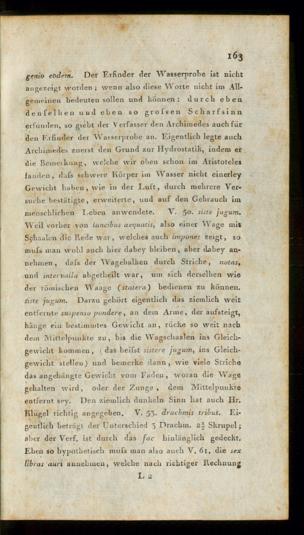 163
genio eodem. Der Erfinder der Wasserprobe ist nicht
angezeigt worden; wenn also diese Worte nicht im All-
gemeinen bedeuten sollen und können: durch eben
denselben und eben so grofsen Scharfsinn
erfunden, so giebt der Verfasser den Archimedes auch für
den Erfinder der Wasserprobe an. Eigentlich legte auch
Archimedes zuerst den Grund zur Hydrostatik, indem er
die Bemerkung, welche wir oben schon im Aristoteles
fanden, dafs schwere Körper im Wasser nicht einerley
Gewicht haben, wie in der Luft, durch mehrere Ver-
suche bestätigte, erweiterte, und auf den Gebrauch im
menschlichen Leben anwendete. V. 50. siste jugum.
Weil vorher von lancibus aequatis, also einer Wage mit
Schaalen die Rede war, welches auch impones zeigt, so
mufs man wohl auch hier dabey bleiben, aber dabey an-
nehmen, dafs der Wagebalken durch Striche, notas,
und intervalla abgetheilt war, um sich derselben wie
der römischen Waage (statera) bedienen zu können.
siste jugum. Darzu gehört eigentlich das ziemlich weit
entfernte suspenso pondere, an dem Arme, der aufsteigt,
hänge ein bestimmtes Gewicht an, rücke so weit nach
dem Mittelpunkte zu, bis die Wagschaalen ins Gleich-
gewicht kommen, (das heifst sistere jugum, ins Gleich-
gewicht stellen) und bemerke dann, wie viele Striche
das angehängte Gewicht vom Faden, woran die Wage
gehalten wird, oder der Zunge, dem Mittelpunkte
entfernt sey. Den ziemlich dunkeln Sinn hat auch Hr.
Klügel richtig angegeben. V. 53. drachmis tribus. Ei-
gentlich beträgt der Unterschied 3 Drachm. Skrupel;
aber der Verf. ist durch das fac hinlänglich gedeckt.
Eben so hypothetisch mufs man also auch V. 61. die sex
libras auri annehmen, welche nach richtiger Rechnung
L 2